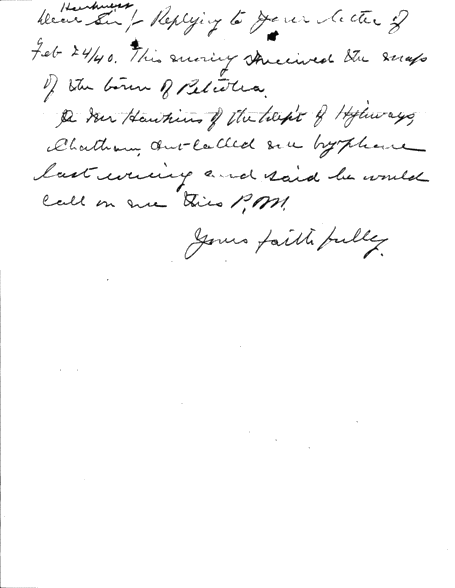 Harkness
Dear Sir/- Replying to your letter of
Feb 24/40. This morning I received the map
of the town of Petrolia.
A Mr Hawkins of the Dep't of Highways,
Chatham, Ont called me by phone
last evening and said he would
call on me this P.M.
Yours faithfully.